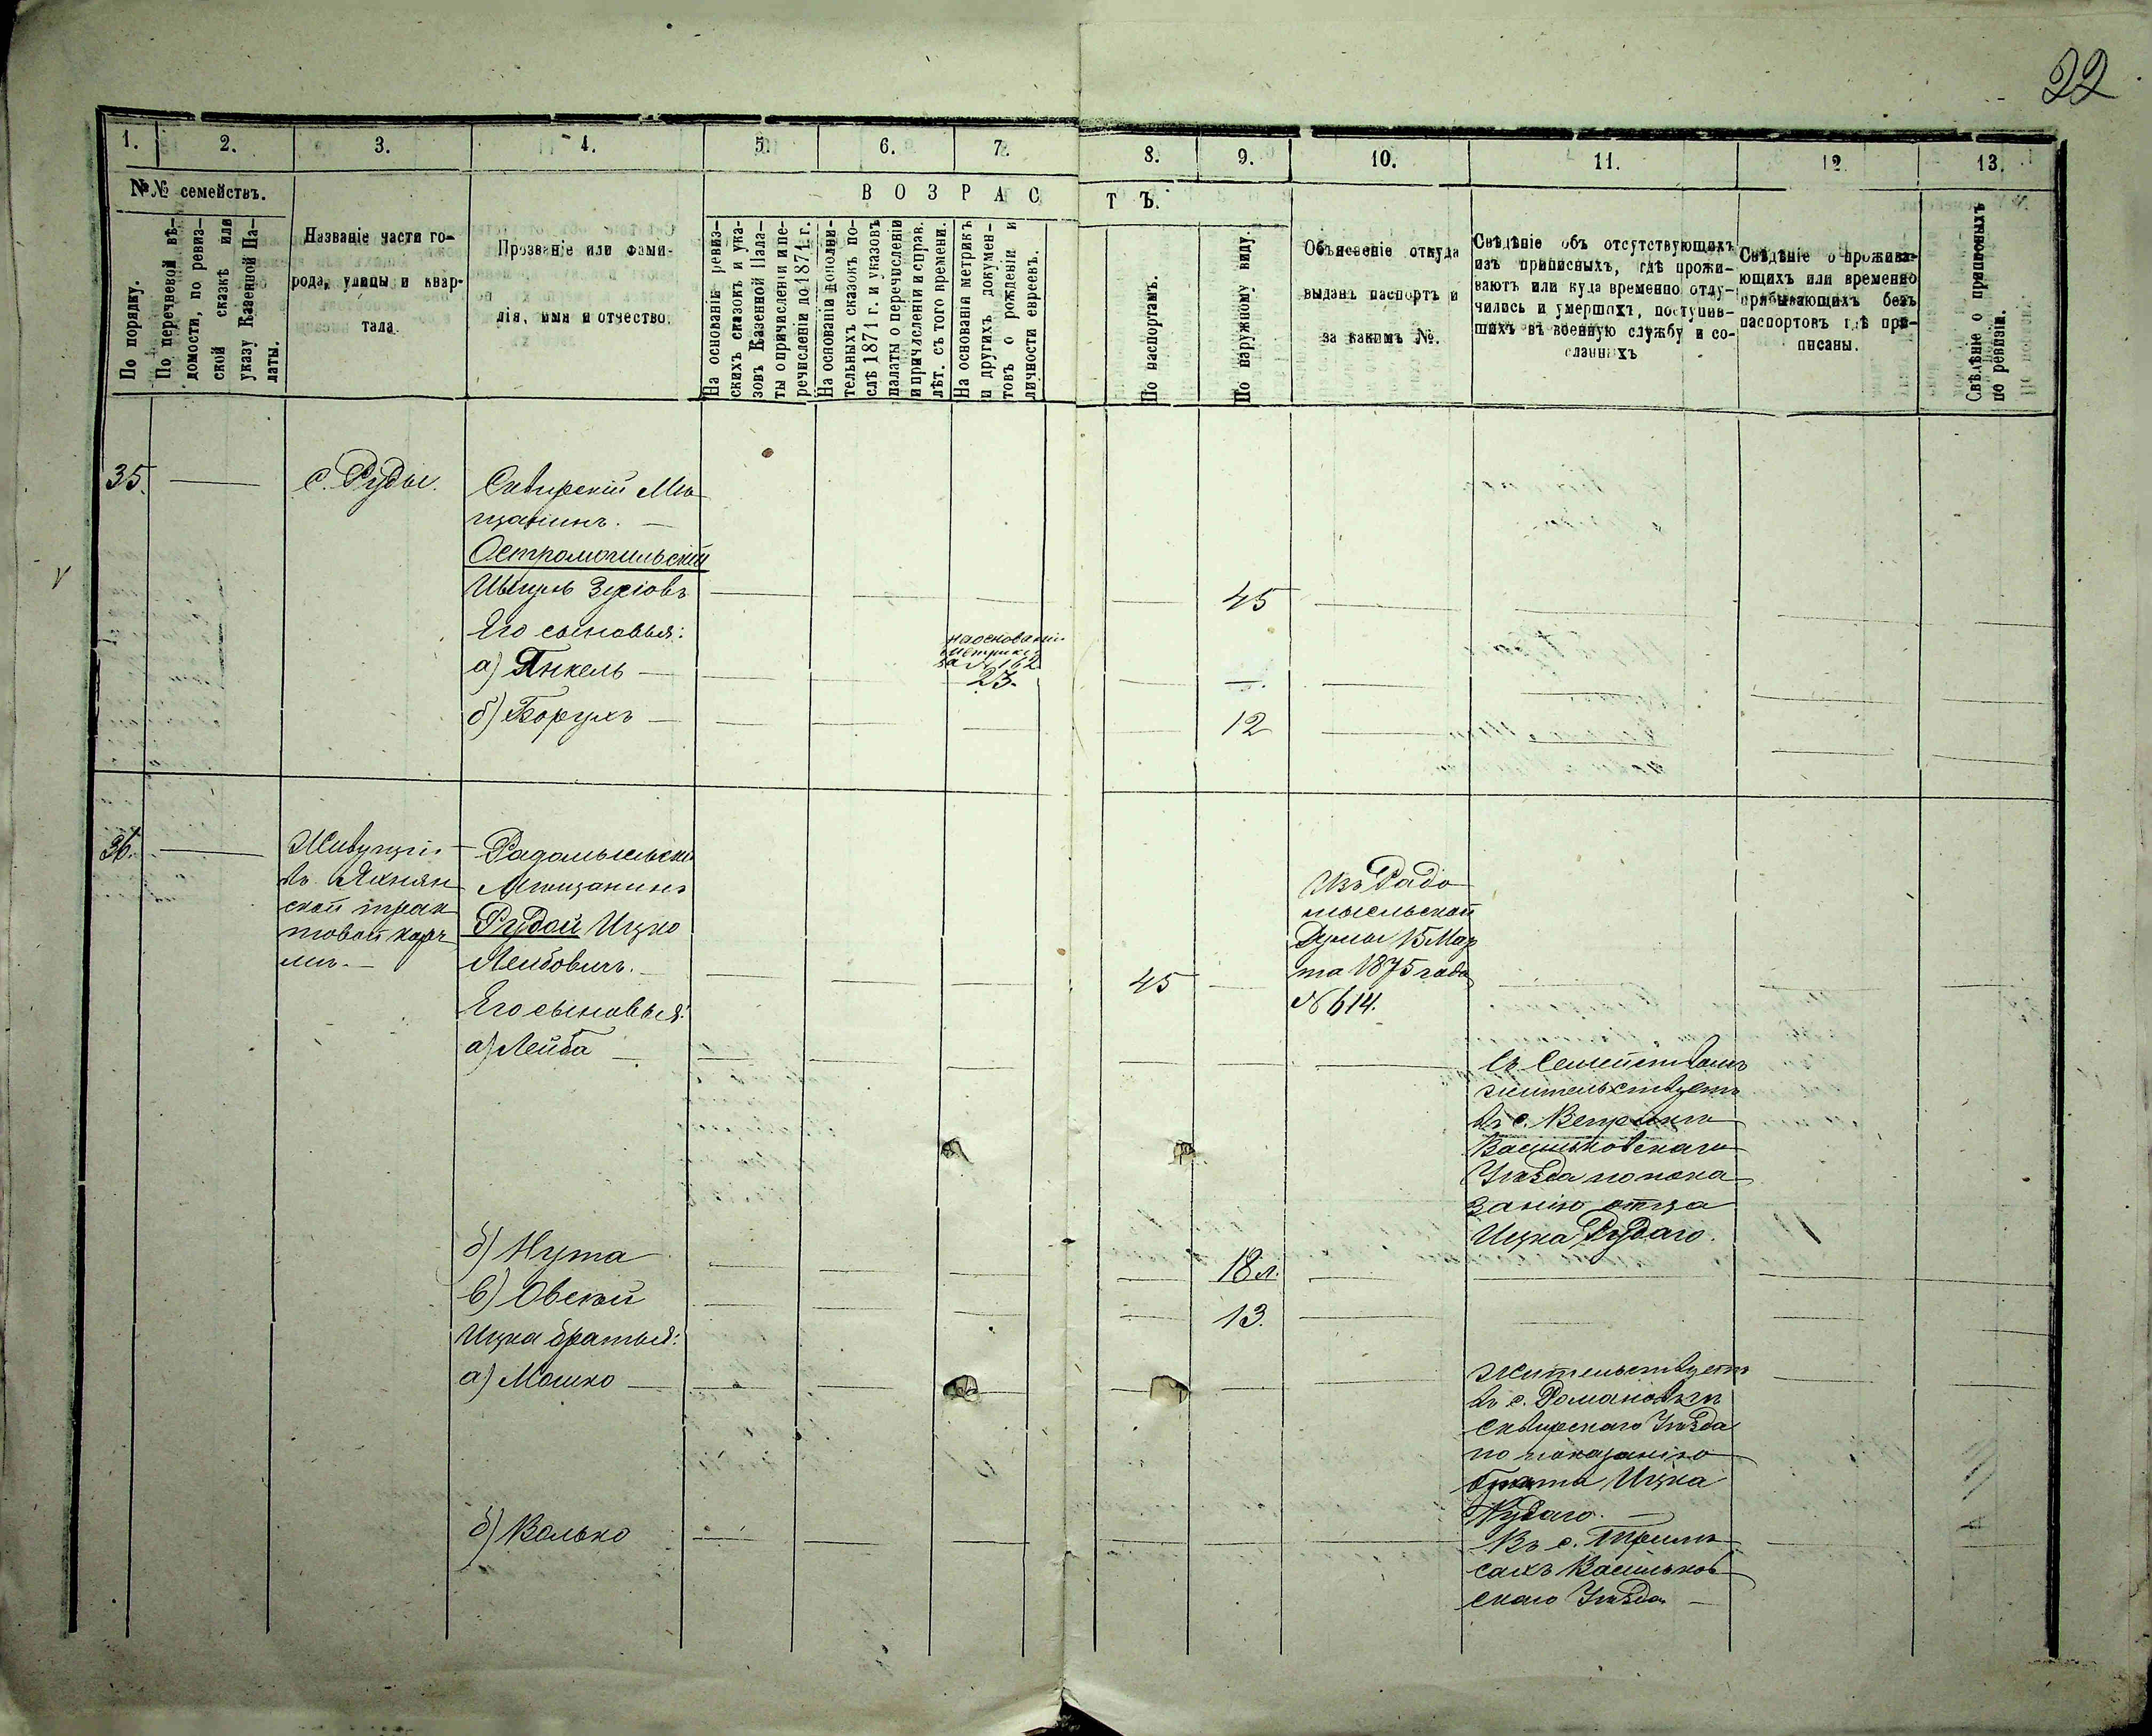 22
1. 2. 3. 4. 5. 6. 7. 8. 9. 10. 11. 12. 13.
№№ семействъ.
По порядку.
По перечневой вѣ-
домости, по ревиз-
ской сказкѣ или
указу Казенной Па-
латы.
Названіе части го-
рода, улицы и квар-
тала.
Прозваніе или фами-
лія, имя и отчество.
ВОЗРАСТЪ.
На основаніи ревиз-
скихъ сказокъ и ука-
зовъ Казенной Пала-
ты о причислени и пе-
речислени по 1871 г.
На основаніи дополни-
тельныхъ сказокъ по-
слѣ 1871 г. и указовъ
палаты о перечислени
и причислени и справ.
лѣт. съ того времени.
На основаніи метрикъ
и другихъ докумен-
товъ о рожденіи и
личности евреевъ.
По паспортамъ.
По наружному виду.
Объясненіе откуда
выданъ паспортъ и
за какимъ №.
Свѣдѣніе объ отсутствующихъ
изъ приписныхъ, гдѣ прожи-
ваютъ или куда временно отлу-
чились и умершихъ, поступив-
шихъ въ военную службу и со-
сланныхъ
Свѣдѣніе о прожива-
ющихъ или временно
прибывающихъ безъ
паспортовъ гдѣ при-
писаны.
Свѣдѣніе о приписныхъ
по ревизіи.
35. — с. Руды.
Сквирскій Мѣ
щанинъ. —
Остромогильскій
Шмуль Зусіовъ
45
Его сыновья:
а) Янкель —
на основаніи
метрики
за № 162
23.
б) Борухъ —
12
36. —
Живущій
въ Яхнян
ской трак
товой корч
мѣ. —
Радомысльскій
Мѣщанинъ
Рудой Ицко
Лейбовичъ. —
45
Изъ Радо
мысльской
Думы 15 Мар
та 1875 года
№ 614.
Его сыновья:
а) Лейба —
Съ Семействомъ
жительствуетъ
въ с.
Васильковскаго
Уѣзда по пока
занію отца
Ицка Рудаго.
б) Нута
18 л.
в) Овсѣй
13.
Ицка братья:
а) Мошко —
Жительствуетъ
въ с. Романовкѣ
Сквирскаго Уѣзда
по показанію
брата Ицка
Рудаго. —
б) Волько
Въ с. Трилѣ
сахъ Васильков
скаго Уѣзда —